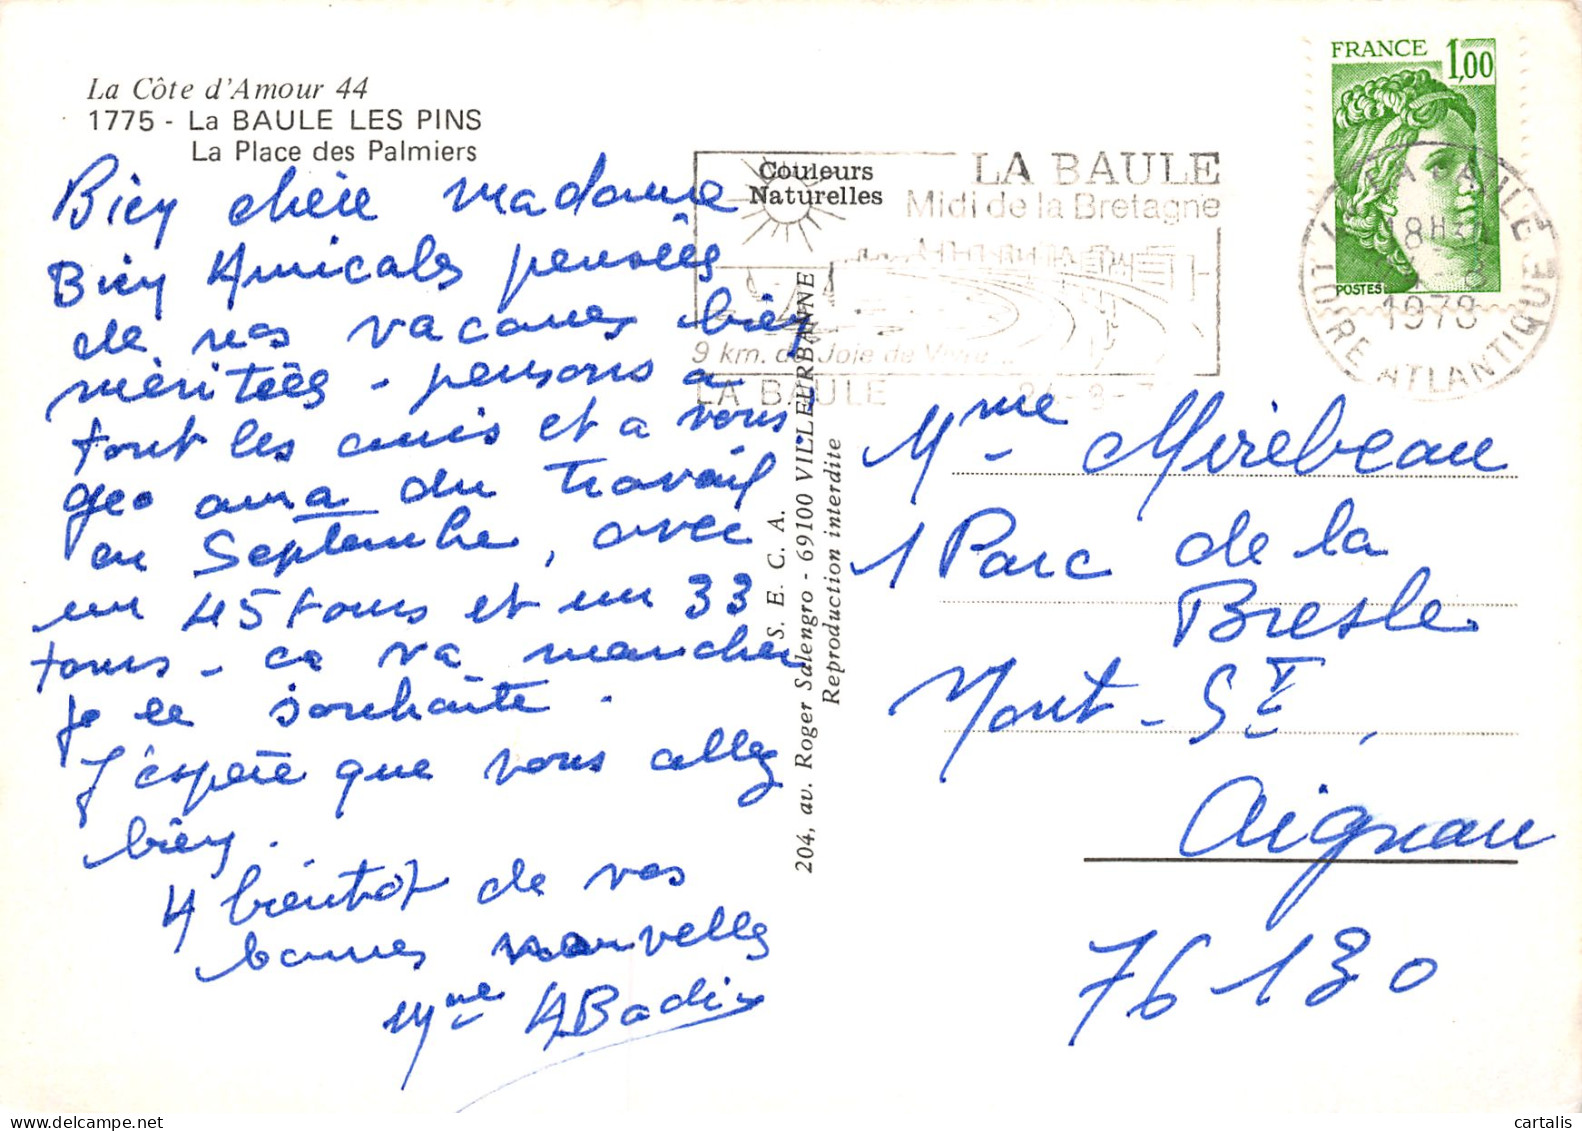 La Côte d'Amour 44
1775 - La BAULE LES PINS
La Place des Palmiers
Bien chère madame
Bien Amicales pensées
de nos vacances bien
méritées - pensons a
tout les amis et a vous.
geo aura du travail
en Septembre, avec
un 45 tours et un 33
tours - ca va marcher
je le souhaite.
J'espère que vous allez
bien.
A bientot de vos
bonnes nouvelles
Mme ABadi
Couleurs
Naturelles
LA BAULE
Midi de la Bretagne
9 km. de Joie de Vivre...
LA BAULE
S. E. C. A.
204, av. Roger Salengro - 69100 VILLEURBANNE
Reproduction interdite
FRANCE 1,00
POSTES
LA BAULE
18H
1978
LOIRE ATLANTIQUE
Mme Mirebeau
1 Parc de la
Bresle
Mont-St,
Aignan
76130
cartalis